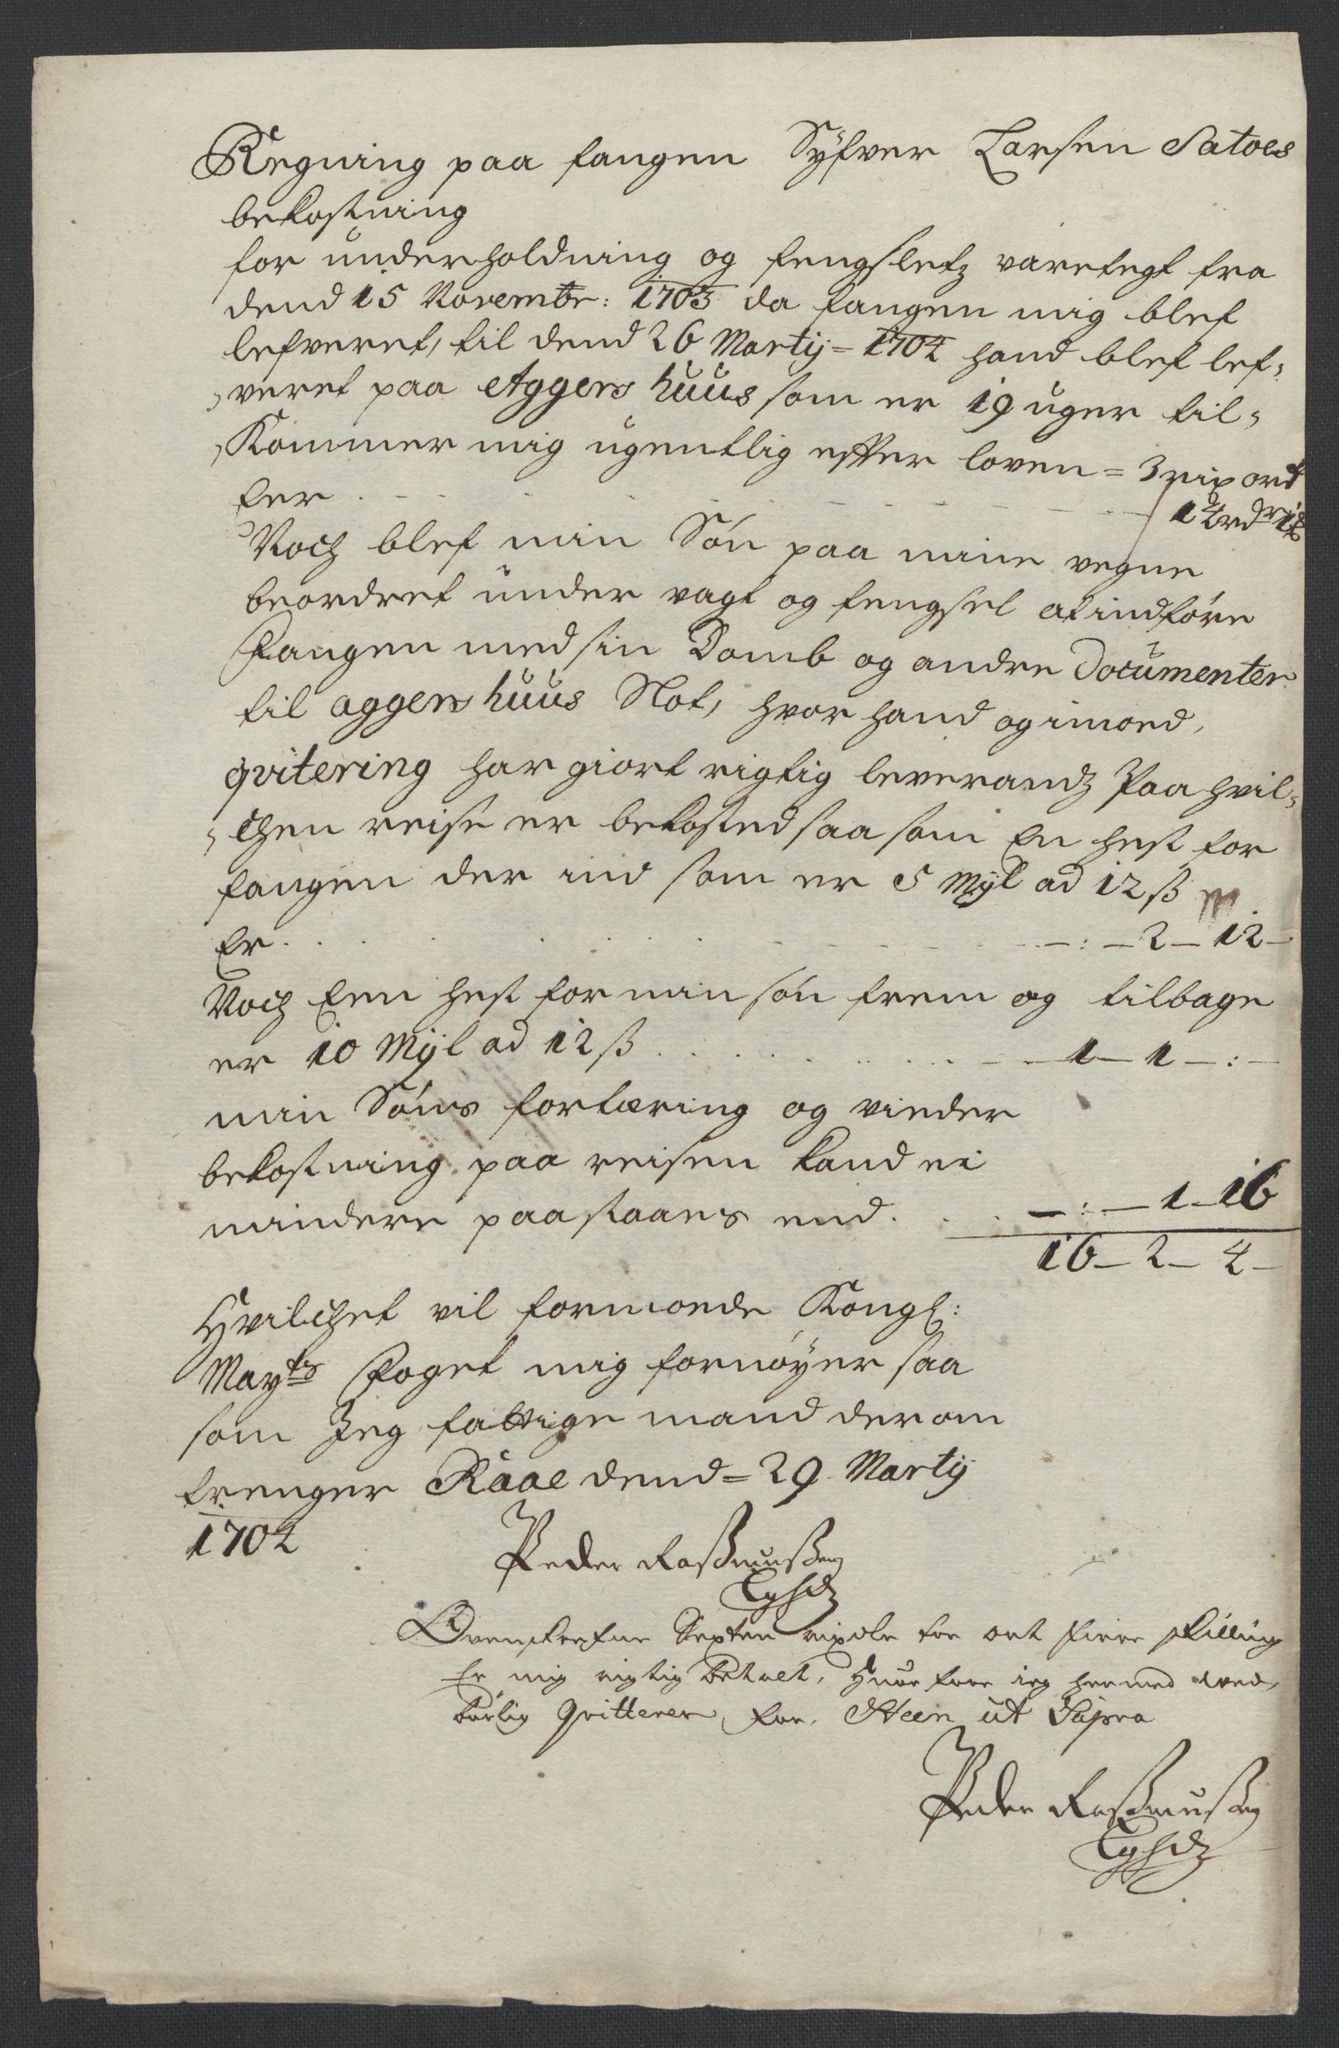 Regning paa fangen Syfver Larsen Satoes
bekostning
for underholdning og fengsletz varetegt fra
dend 15 Novembr: 1703 da fangen mig blef
lefveret, til dend 26 Martij = 1704 hand blef lef,
veret paa Aggers huus som er 19 uger til,
Kommer mig ugentlig effter loven = 3 rix ort
Er . . . 1
Noch blef min Sön paa mine vegne
beordret under vagt og fengsel at indföre
Fangen med sin Domb og andre Documenter
til aggers huus Slot, hvor hand og imod,
qvitering har giort rigtig leverandz Paa hvil,
chen reise er bekosted saa som En hest for
fangen der ind som er 5 Mijl ad 12 ß
Er . . . - : - 2 - 12 -
Noch Een hest for min sön frem og tilbage
er 10 Mijl ad 12 ß . . . 1 - 1 - : -
min Söns fortæring og vieder
bekostning paa reisen kand ei
mindere paastaaes end . . . - : - 1 - 16
16 - 2 - 4 -
Hvilchet vil formoede Kongl:
Mayts Foget mig fornöyer saa
som Jeg fattige mand der om
trenger Raae dend = 29 Martij
1704
Peder Raßmußen
Ofvenskrefne Sexten rixdlr toe ort fiere skilling
Er mig rigtig betalt, Huor fore ieg hermed
börlig Qvitterer, for. Steen ut Supra
Peder Raßmußen